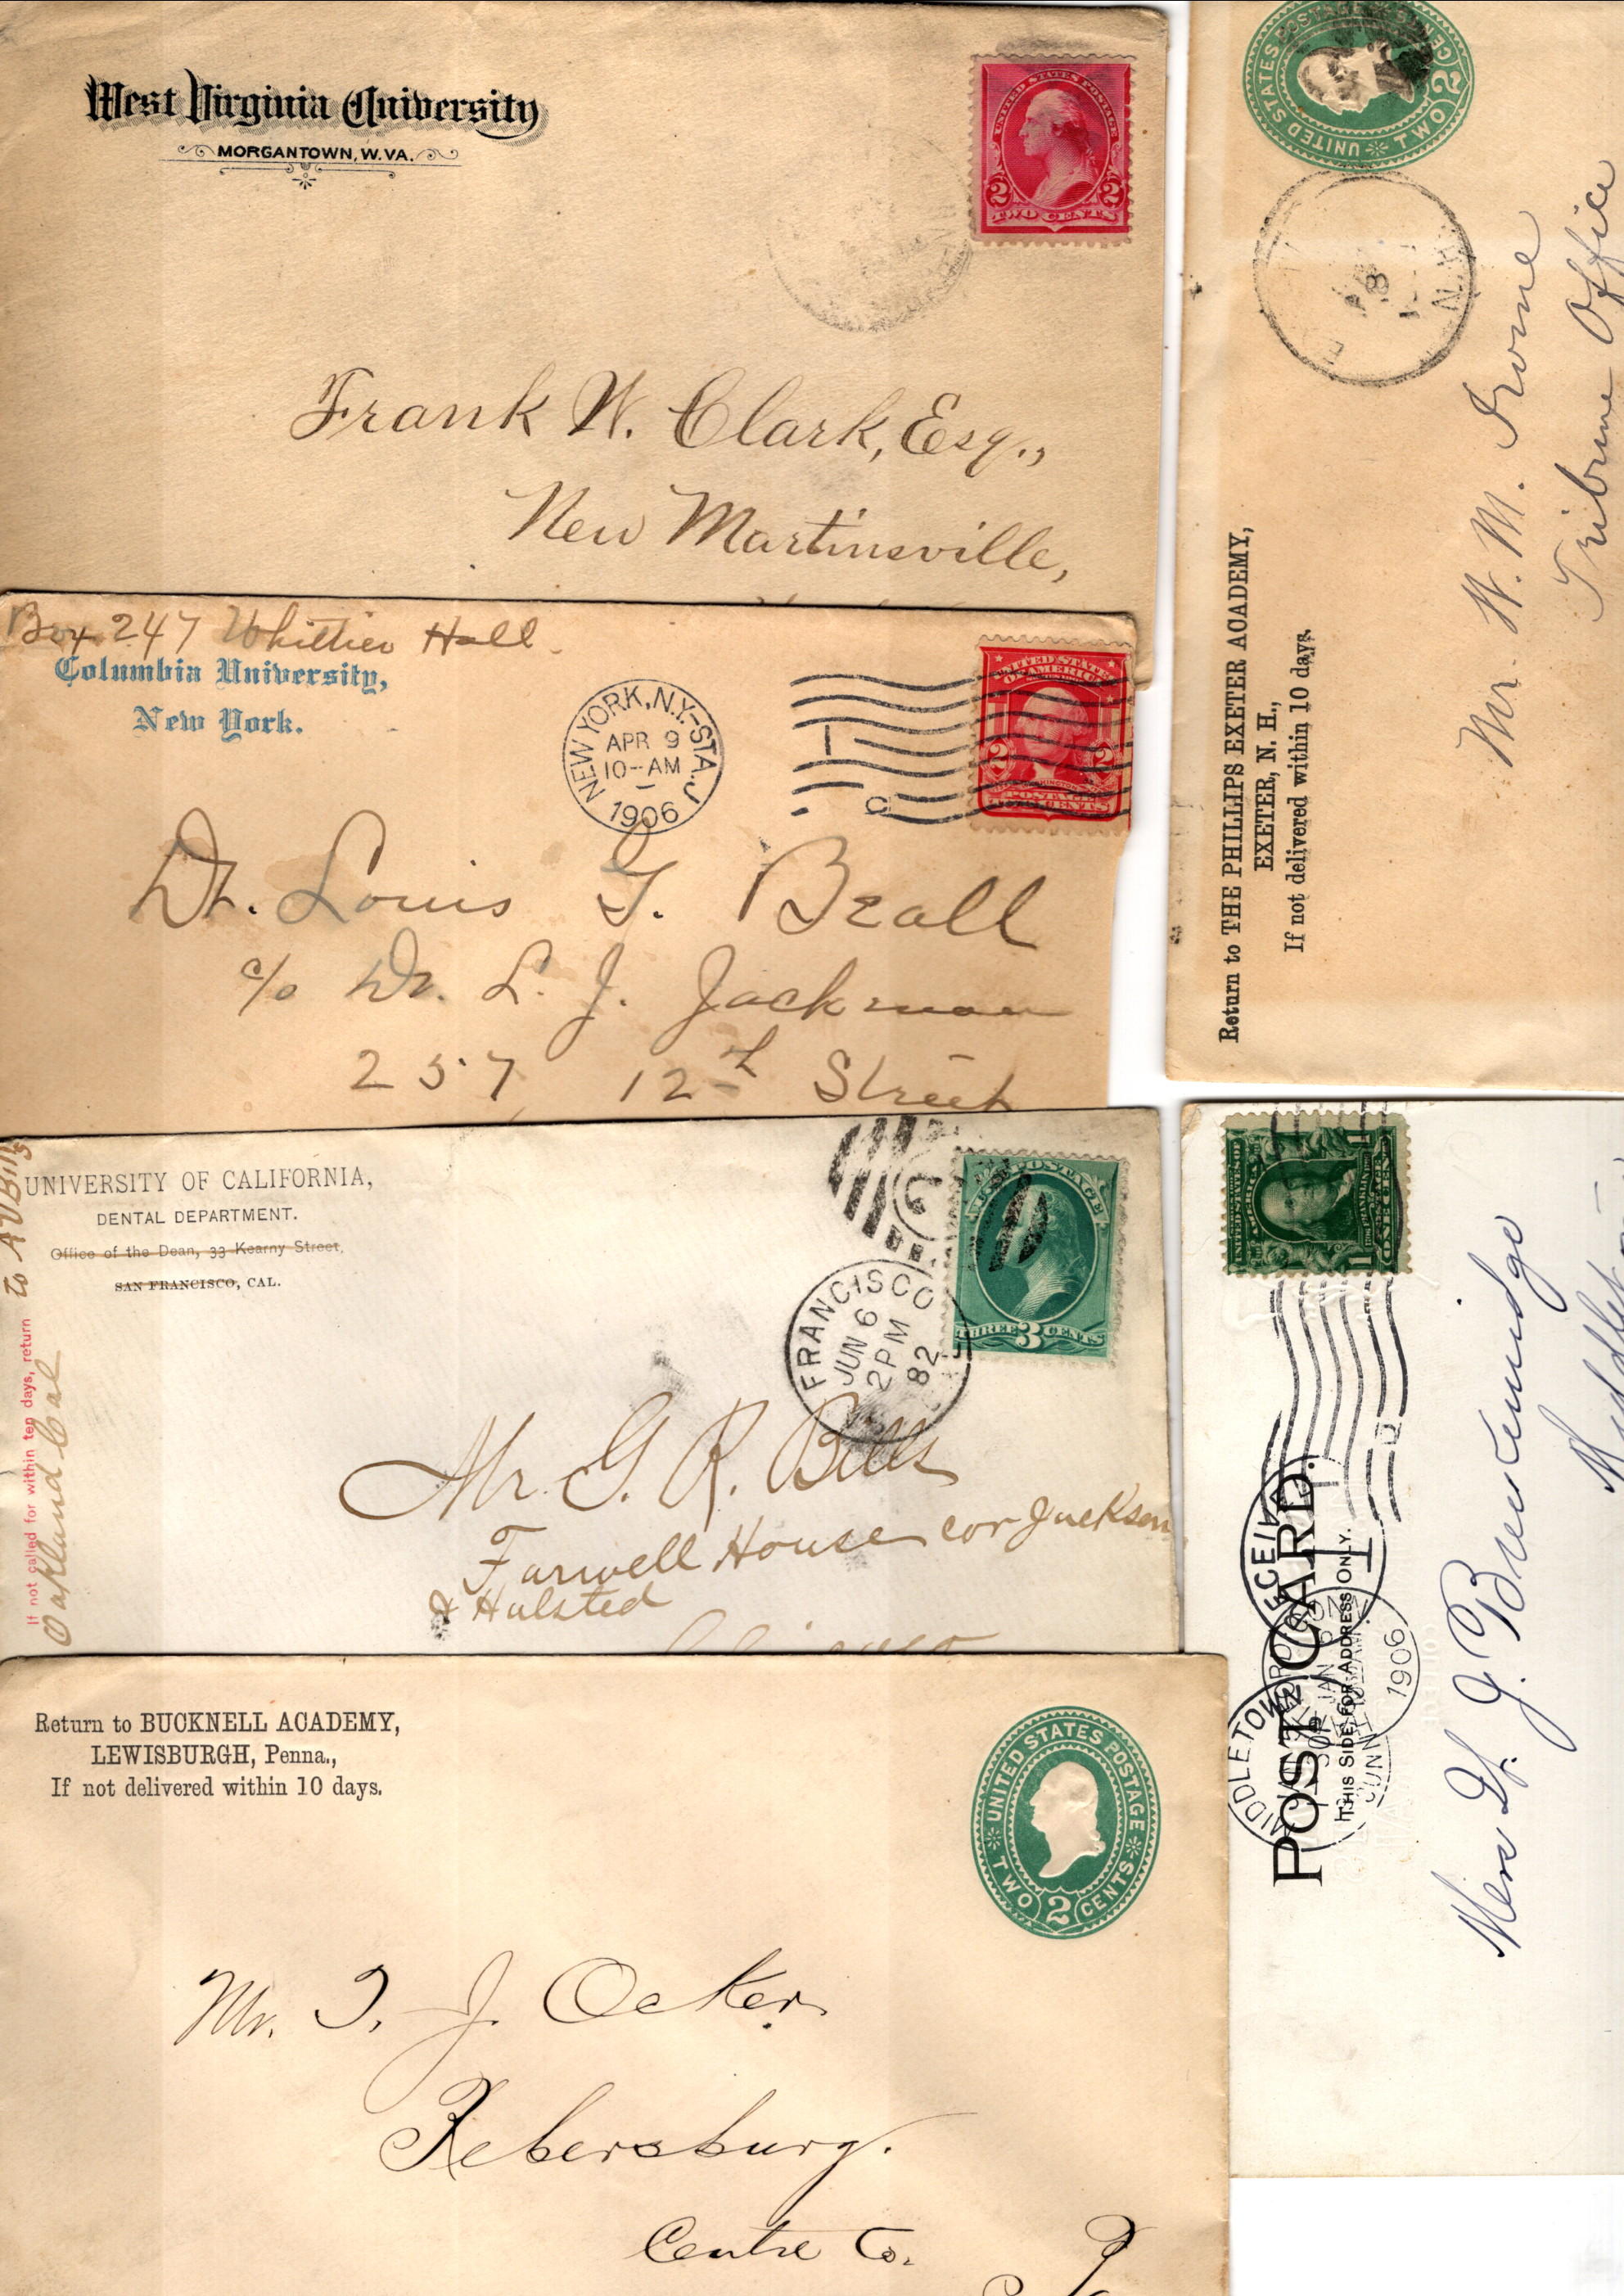 West Virginia University
MORGANTOWN, W. VA.
UNITED STATES POSTAGE
2 2
TWO CENTS
Frank W. Clark, Esq.,
New Martinsville,
Box 247 Whittier Hall.
Columbia University,
New York.
NEW YORK, N.Y.-STA. J
APR 9
10-AM
1906
UNITED STATES
OF AMERICA
2 2
POSTAGE
Dr. Louis G. Beall
c/o Dr. L. J. Jackman
257 12th Street
UNIVERSITY OF CALIFORNIA,
DENTAL DEPARTMENT.
Office of the Dean, 33 Kearny Street,
SAN FRANCISCO, CAL.
If not called for within ten days, return to A V Bills
Oakland Cal
FRANCISCO
JUN 6
2 PM
82
POSTAGE
THREE 3 CENTS
Mr. G. R. Bills
Farwell House cor Jackson
& Halsted
Return to BUCKNELL ACADEMY,
LEWISBURGH, Penna.,
If not delivered within 10 days.
UNITED STATES POSTAGE
TWO 2 CENTS
Mr. T. J. Ocker
Rebersburg.
Centre Co.
UNITED STATES POSTAGE
TWO 2 CEN
N.H.
Return to THE PHILLIPS EXETER ACADEMY,
EXETER, N. H.,
If not delivered within 10 days.
Mr. W. M. Irvine
Tribune Office
ONE CENT
POST CARD.
THIS SIDE FOR ADDRESS ONLY.
MIDDLETOWN
RECEIVED
JAN
1906